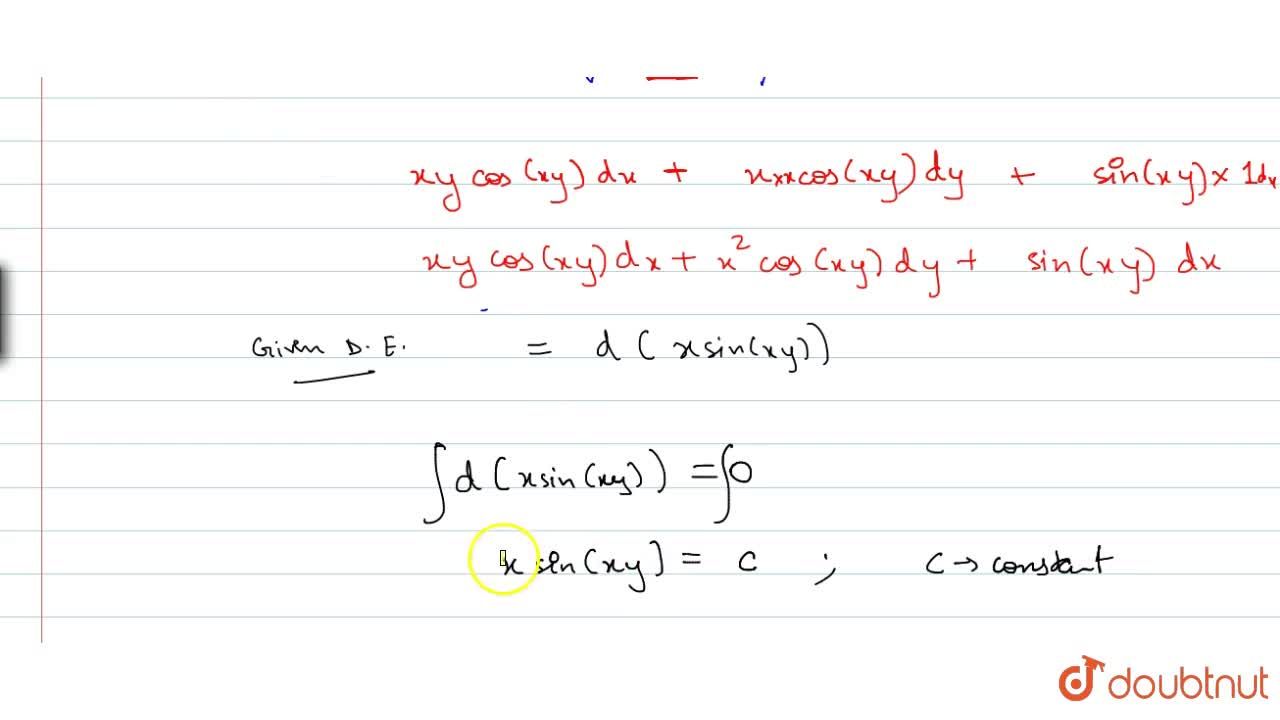 xy cos(xy) dx + x×x cos(xy) dy + sin(xy) × 1dx
xy cos(xy) dx + x² cos(xy) dy + sin(xy) dx
Given D.E. = d(x sin(xy))
∫ d(x sin(xy)) = ∫ 0
x sin(xy) = c ; c → constant
doubtnut